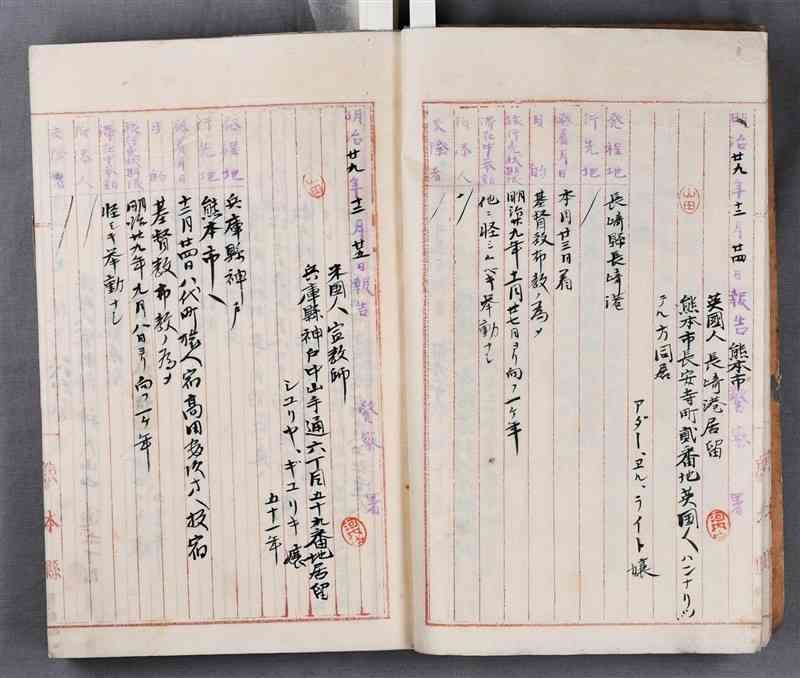 明治廿九年十二月廿四日報告熊本市警察署
英國人 長崎港居留
熊本市長安寺町貳番地英國人ハンナリツ
デル方同居
アダー、エル、ライト嬢
山田
發程地 長崎縣長崎港
行先地 〃
發着月日 本月廿三日着
目的 基督教布教ノ為メ
旅行免状期限 明治廿九年十二月廿七日ヨリ向フ一ヶ年
滞在中挙動 他ニ怪シムベキ挙動ナシ
同伴人 〃
交際者 〃
明治廿九年十二月廿五日報告 警察署
米國人 宣教師
兵庫縣神戸中山手通六丁目五十九番地居留
ジユリヤ、ギユリキ嬢
五十一年
山田
發程地 兵庫縣神戸
行先地 熊本市ヘ
發着月日 十二月廿四日八代町旅人宿高田ヘ投宿
目的 基督教布教ノ為メ
旅行免状期限 明治廿九年九月八日ヨリ向フ一ヶ年
滞在中挙動 怪シキ挙動ナシ
同伴人 〃
交際者 〃
熊本縣